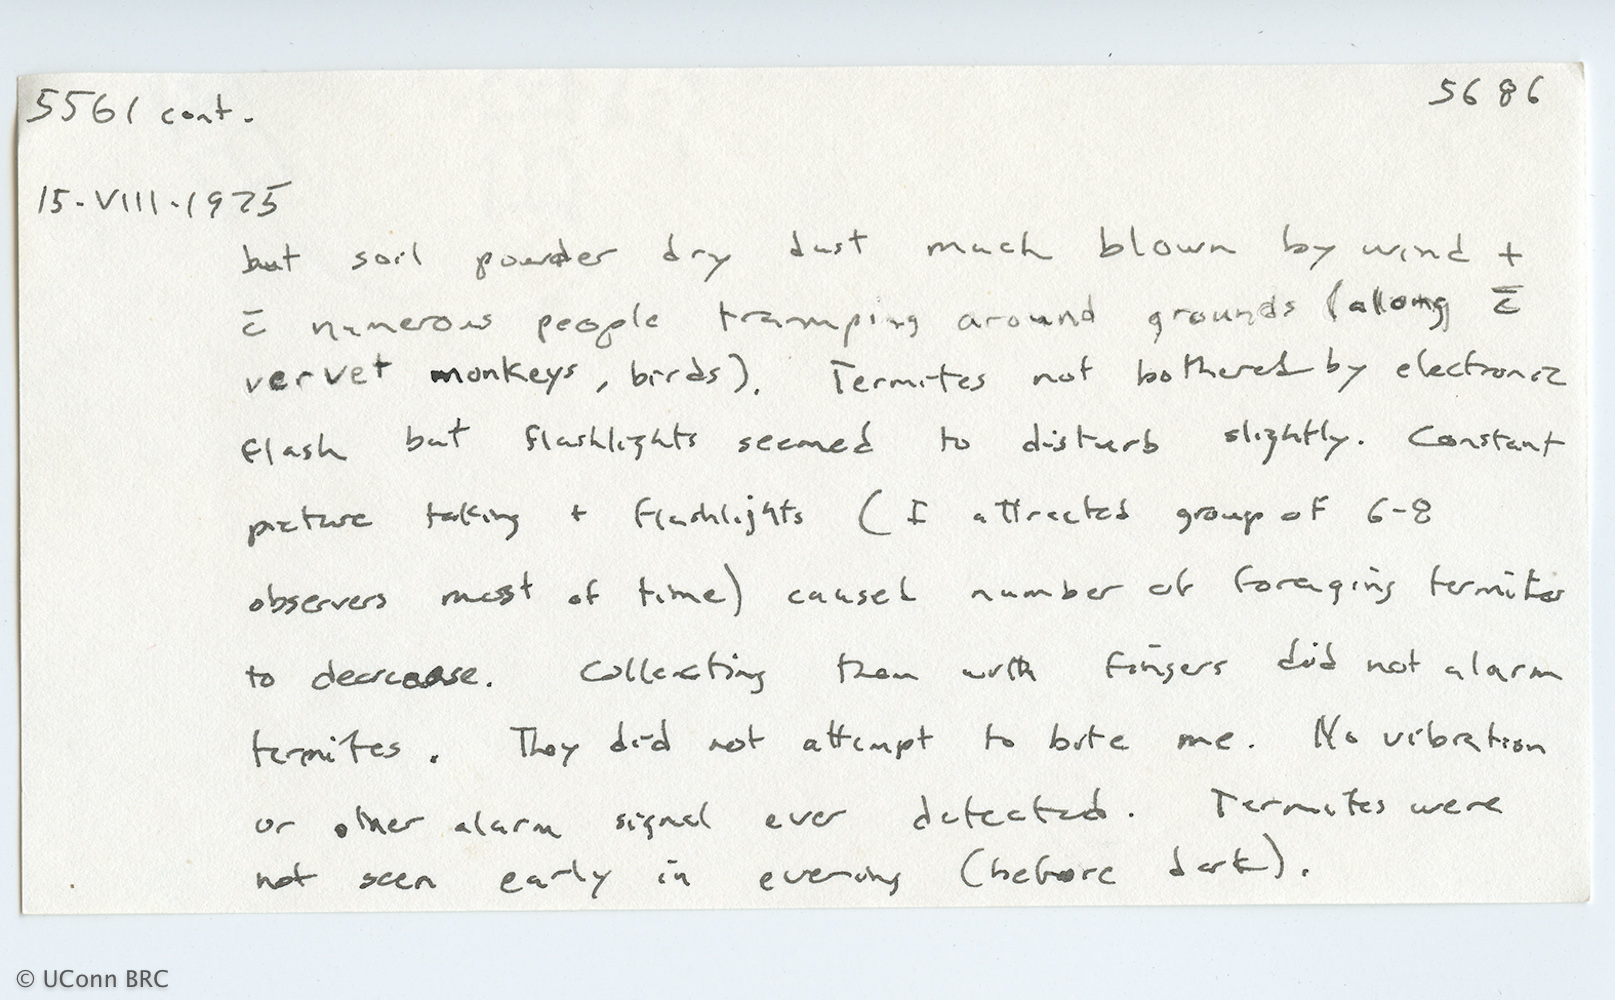 5561 cont.
5686
15-VIII-1975
but soil powder dry dust much blown by wind +
c̄ numerous people tramping around grounds (along c̄
vervet monkeys, birds). Termites not bothered by electronic
flash but flashlights seemed to disturb slightly. Constant
picture taking + flashlights (I attracted group of 6-8
observers most of time) caused number of foraging termites
to decrease. Collecting them with fingers did not alarm
termites. They did not attempt to bite me. No vibration
or other alarm signal ever detected. Termites were
not seen early in evening (before dark).
© UConn BRC